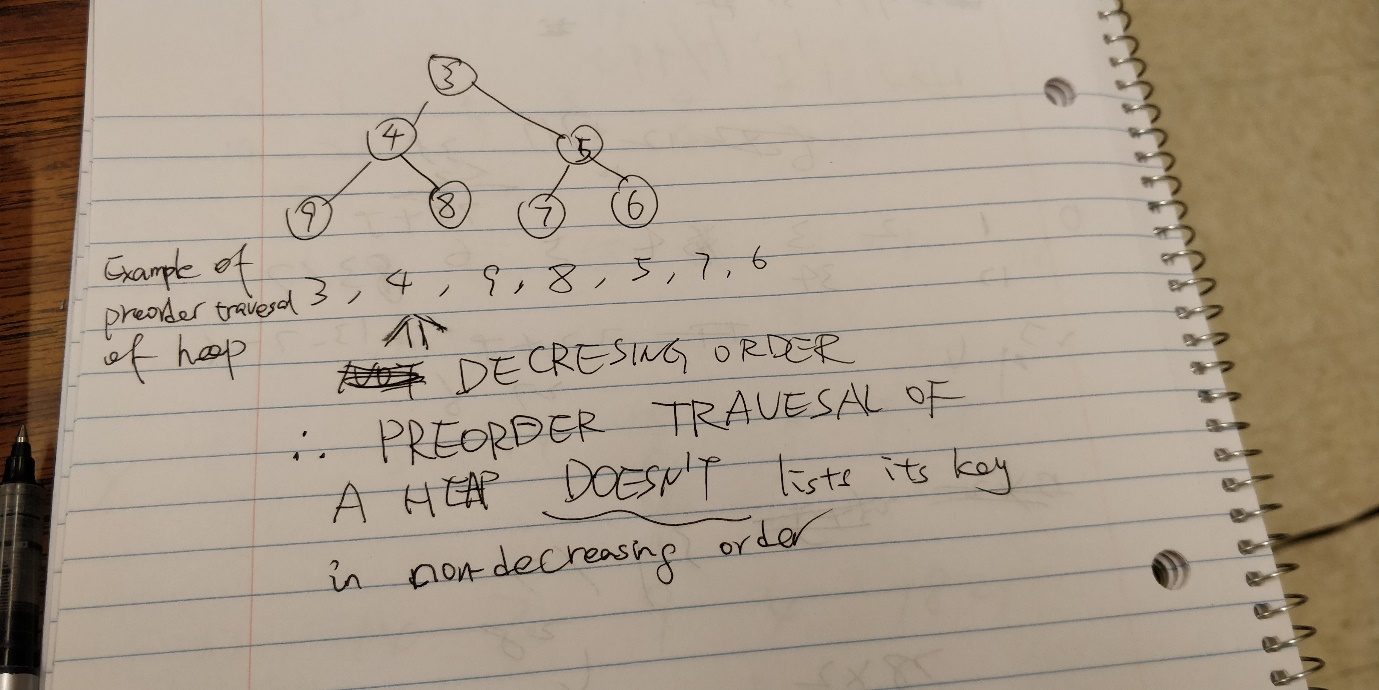 3
4 5
9 8 7 6
Example of
preorder travesal
of heap
3, 4, 9, 8, 5, 7, 6
DECRESING ORDER
∴ PREORDER TRAVESAL OF
A HEAP DOESN'T lists its key
in nondecreasing order